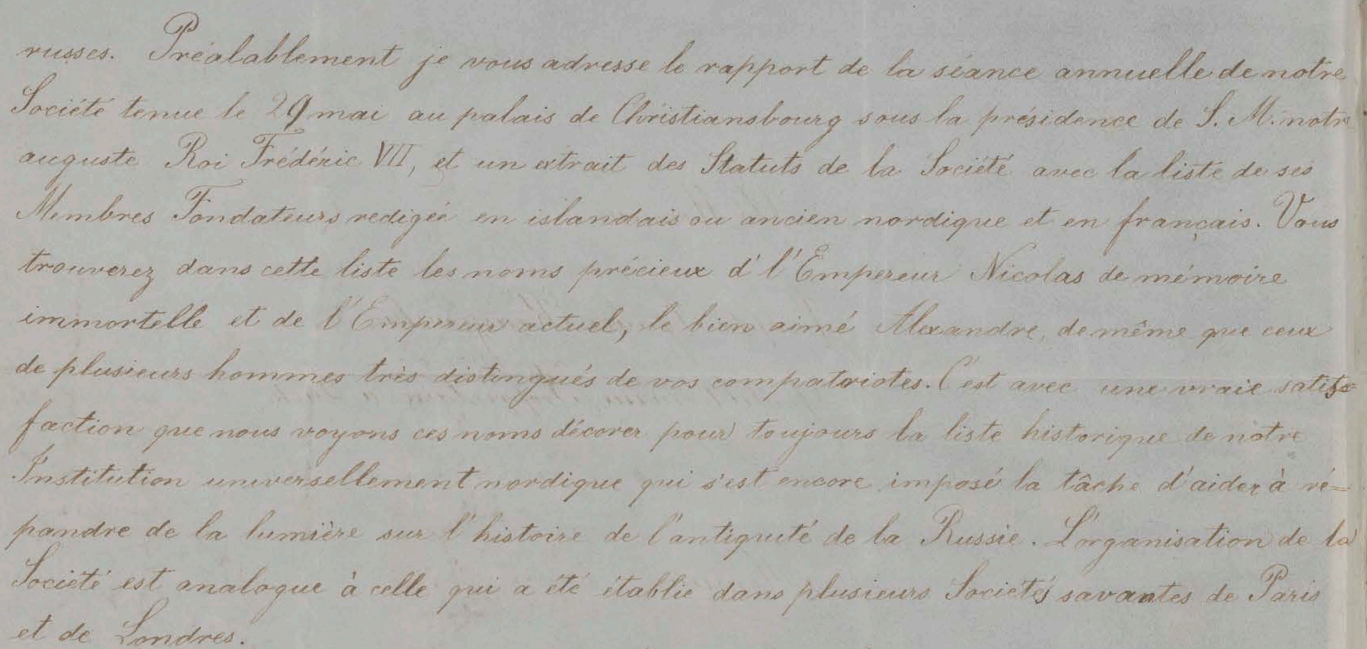 russes. Préalablement je vous adresse le rapport de la séance annuelle de notre
Société tenue le 29 mai au palais de Christiansbourg sous la présidence de S. M. notre
auguste Roi Frédéric VII, et un extrait des Statuts de la Société avec la liste de ses
Membres Fondateurs redigée en islandais ou ancien nordique et en français. Vous
trouverez dans cette liste les noms précieux d l'Empereur Nicolas de mémoire
immortelle et de l'Empereur actuel, le bien aimé Alexandre, de même que ceux
de plusieurs hommes très distingués de vos compatriotes. C'est avec une vraie satis=
faction que nous voyons ces noms décorer pour toujours la liste historique de notre
Institution universellement nordique qui s'est encore imposé la tâche d'aider à ré=
pandre de la lumière sur l'histoire de l'antiquité de la Russie. L'organisation de la
Société est analogue à celle qui a été établie dans plusieurs Sociétés savantes de Paris
et de Londres.